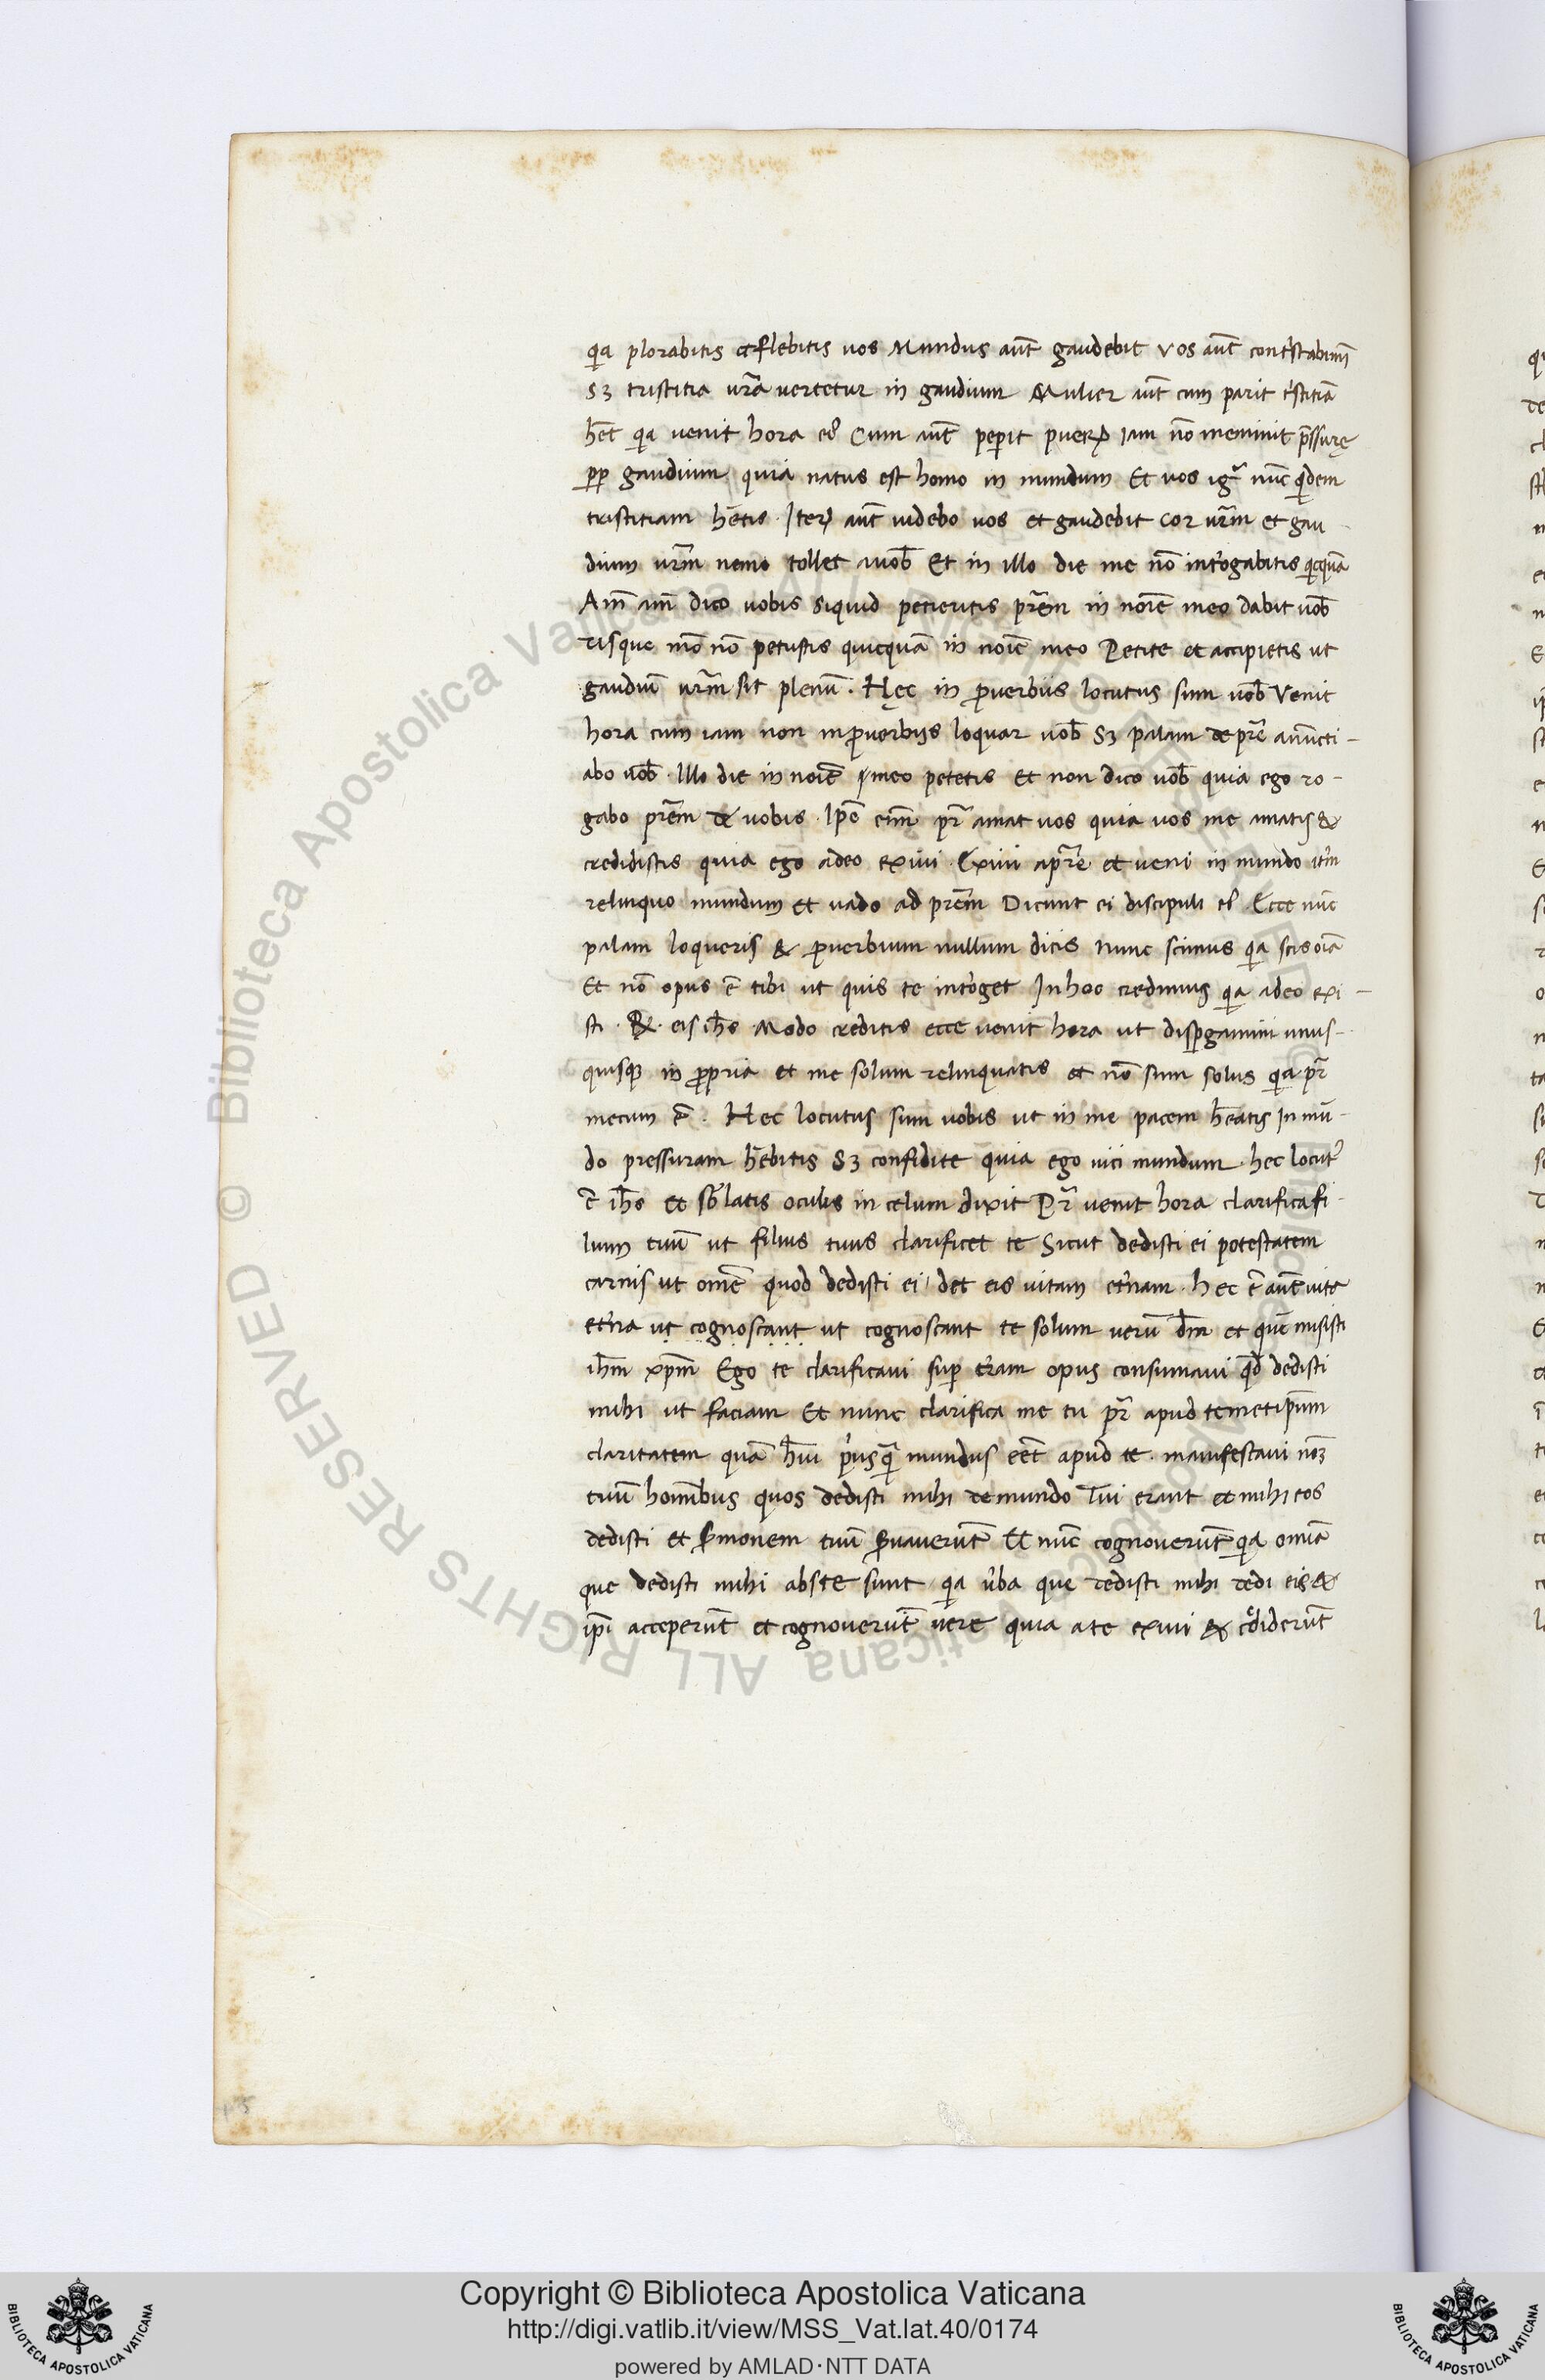 qia plorabitis et flebitis uos Mundus aūt gaudebit Vos aūt contstabimī
Sꝫ tristitia ur̄a uertetur in gaudium Mulier aūt cum parit tristitiā
h̄et qia uenit hora eꝰ Cum aūt peperit pueꝝ iam nō meminit p̄ssurę
pp gaudium quia natus est homo in mundum Et uos igr̄ nūc qidem
tristitiam h̄etis. Iteꝝ aūt uidebo uos et gaudebit cor ur̄m et gau
dium ur̄m nemo tollet auob̄ Et in illo die me nō int'ogabitis qicquā
Am̄ am̄ dico uobis siquid petieritis pr̄em in noīe meo dabit uob̄
Usque mō nō petistis quicquā in noīe meo Petite et accipietis ut
gaudiū ur̄m sit plenū. Hęc in ꝓuerbiis locutus sum uob̄ Venit
hora cum iam non in ꝓuerbiis loquar uob̄ Sꝫ palam de pr̄e anūcti-
abo uob̄. Illo die in noīe meo petetis Et non dico uob̄ quia ego ro-
gabo pr̄em de uobis. Ip̄e eīm pr̄ amat uos quia uos me amatis &
credidistis quia ego adeo exiui Exiui apr̄e et ueni in mundo it'm
relinquo mundum et uado ad pr̄em Dicunt ei discipuli eꝰ Ecce nūc
palam loqueris & ꝓuerbium nullum dicis Nunc scimus qia scis oīa
Et nō opus ē tibi ut quis te int'oget Inhoc credimus qia adeo exi-
sti. R. eis ih̄s Modo creditis ecce uenit hora ut disꝑgamini unus-
quisqꝫ in ꝓpria et me solum relinquatis et nō sum solus qia pr̄
mecum ē. Hec locutus sum uobis ut in me pacem h̄eatis In mū-
do pressuram h̄ebitis Sꝫ confidite quia ego uici mundum. hec locutꝰ
ē ih̄s et sb̄latis oculis in celum dixit Pr̄ uenit hora clarifica fi-
lium tuū ut filius tuus clarificet te Sicut dedisti ei potestatem
carnis ut om̄e quod dedisti ei / det eis uitam et'nam. hec ē aūt uita
et'na ut cognoscant ut cognoscant te solum uerū dm̄ et quē misisti
ih̄m xp̄m Ego te clarificaui suꝑ t'ram opus consumaui qd̄ dedisti
mihi ut faciam Et nunc clarifica me tu pr̄ apud temetip̄sum
claritatem quā h̄ui p'usq̄ mundus eēt apud te. manifestaui noꝫ
tuū homībus quos dedisti mihi de mundo Tui erant et mihi eos
dedisti et s'monem tuū s'uauerūt Et nūc cognouerūt qia omīa
que dedisti mihi abste sunt qia u'ba que dedisti mihi dedi eis &
ip̄i acceperūt et cognouerūt uere quia a te exiui & c'diderūt
Copyright © Biblioteca Apostolica Vaticana
http://digi.vatlib.it/view/MSS_Vat.lat.40/0174
powered by AMLAD·NTT DATA
BIBLIOTECA APOSTOLICA VATICANA
BIBLIOTECA APOSTOLICA VATICANA
© Biblioteca Apostolica Vaticana ALL RIGHTS RESERVED